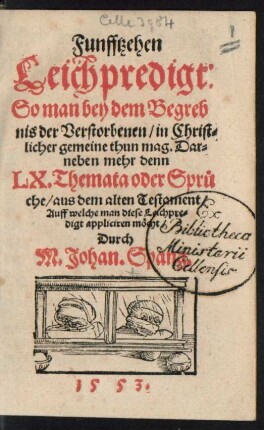 Celle 3984
1
Funfftzehen
Leichpredigt:
So man bey dem Begreb
nis der Verstorbenen / in Christ-
licher gemeine thun mag. Dar-
neben mehr denn
LX. Themata oder Sprü
che / aus dem alten Testament /
Auff welche man diese Leichpre-
digt appliciren möcht
Durch
M. Johan. Spang.
Ex
Bibliotheca
Ministerii
Cellensis
1553.